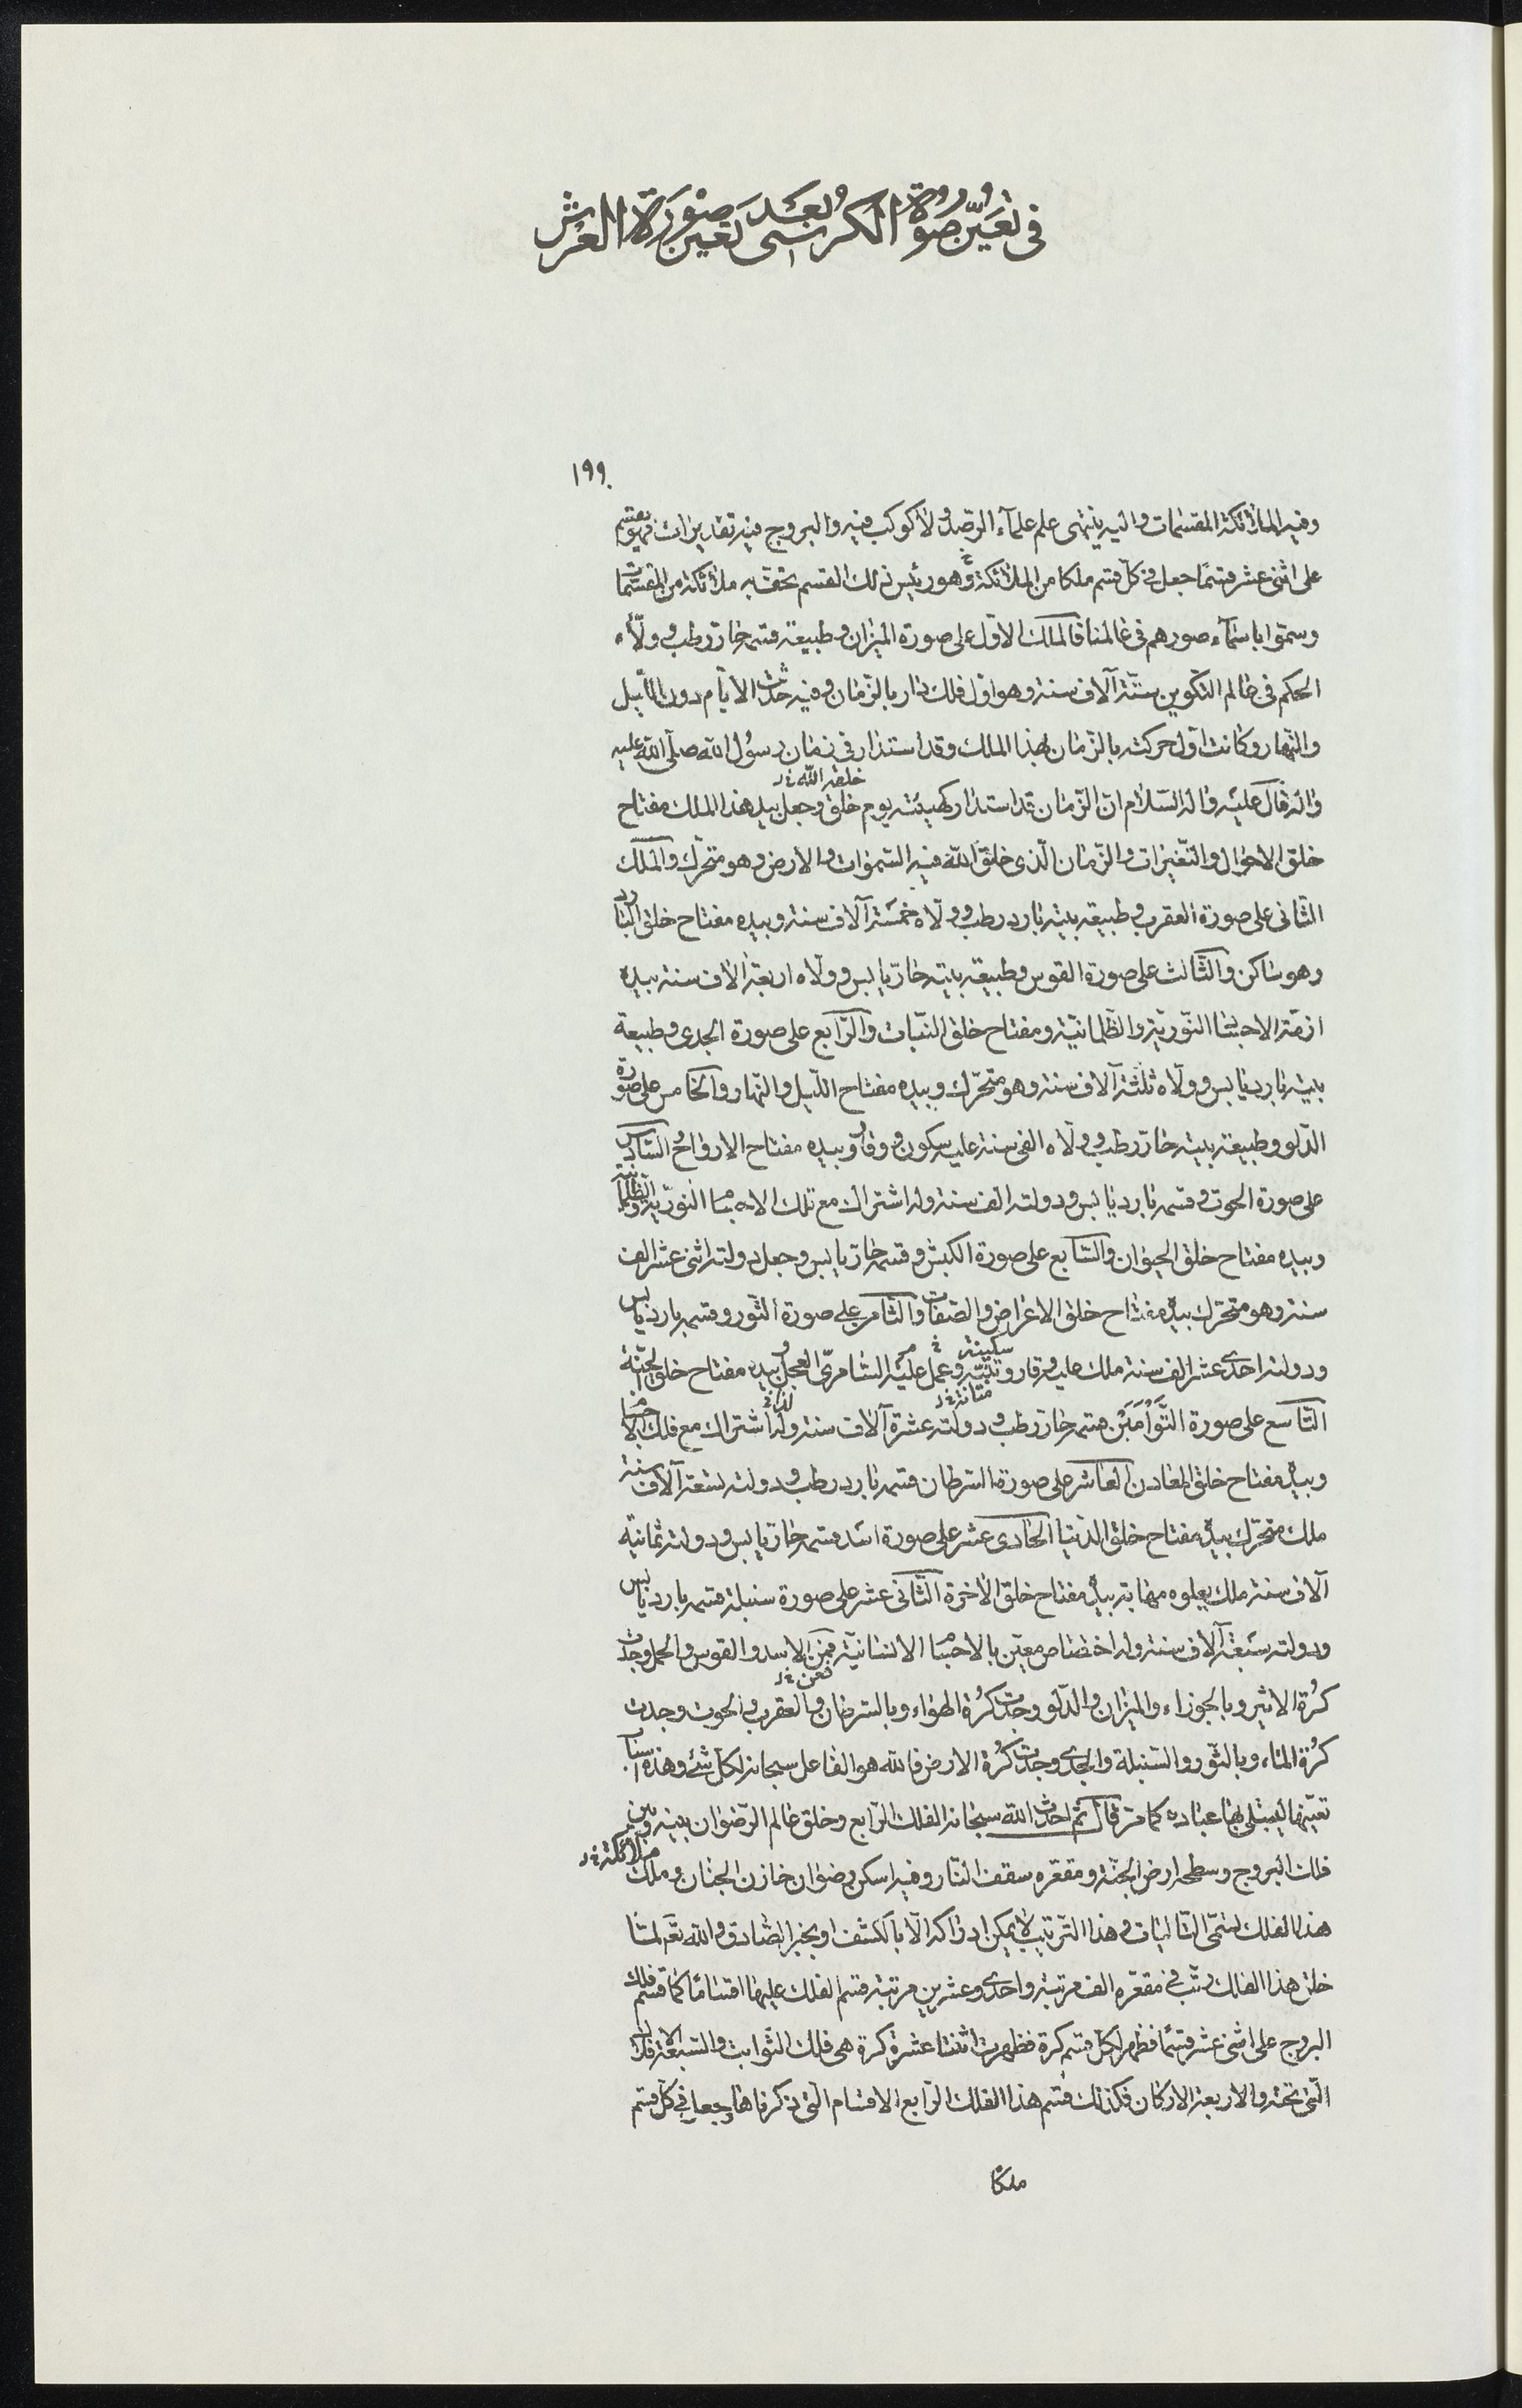 في تعيّن صورة الكرسي بعد تعين صورة العرش
١٩٩
وفيه الملائكة المقسمات واليه ينتهى علم علمآء الرّصد ولا كوكب فيه والبروج فيه تقديرات فهو يقسم
على اثنى عشر قسمًا جعل في كلّ قسم ملكا من الملائكة وهو رئيس ذلك القسم يحفّ به ملائكة من المقسّمات
وسمّوا باسمآء صورهم فى عالمنا فالملك الاوّل على صورة الميزان وطبيعة قسمه حارّ رطب وولّاه
الحكم فى عالم التكوين ستّة آلاف سنة وهو اوّل فلك دار بالزّمان وفيه حدثت الايّام دون اللّيل
والنّهار وكانت اوّل حركته بالزّمان لهذا الملك وقد استدار فى زمان رسول الله صلّى الله عليه
وآله قال عليه وآله السّلام انّ الزّمان قد استدار كهيئته يوم خلق خلقه الله خ‌ل وجعل بيد هذا الملك مفتاح
خلق الاحوال والتّغيرات والزّمان الّذى خلق الله فيه السّموات والارض وهو متحرّك والملك
الثّانى على صورة العقرب وطبيعة بيته بارد رطب وولّاه خمسة آلاف سنة وبيده مفتاح خلق النار
وهو ساكن والثّالث على صورة القوس وطبيعة بيته حارّ يابس وولّاه اربعة آلاف سنة بيده
ازمّة الاجسام النّوريّة والظّلمانيّة ومفتاح خلق النّبات والرّابع على صورة الجدى وطبيعة
بيته بارد يابس وولّاه ثلثة آلاف سنة وهو متحرّك وبيده مفتاح اللّيل والنّهار والخامس على صورة
الدّلو وطبيعة بيته حارّ رطب وولّاه الفى سنة عليه سكون ووقار وبيده مفتاح الارواح والسّادس
على صورة الحوت وقسمه بارد يابس ودولته الف سنة وله اشتراك مع تلك الاجسام النوريّة والظّلمانيّة
وبيده مفتاح خلق الحيوان والسّابع على صورة الكبش وقسمه حارّ يابس وجعل دولته اثنى عشر الف
سنة وهو متحرّك بيده مفتاح خلق الاعراض والصّفات والثّامن على صورة الثّور وقسمه بارد يابس
ودولته احدى عشر الف سنة ملك عليه وقار سكينة خ وعمل عليه السّامرىّ العجل وبيده مفتاح خلق الجنّة
التّاسع على صورة التّوأمين قسمه حارّ رطب ودولته عشرة آلاف سنة وله اشتراك مع فلك الاجسام
وبيده مفتاح خلق المعادن العاشر على صورة السّرطان قسمه بارد رطب ودولته تسعة آلاف سنة
ملك متحرّك بيده مفتاح خلق الدّنيا الحادى عشر على صورة اسد قسمه حارّ يابس ودولته ثمانية
آلاف سنة ملك يعلوه مهابة بيده مفتاح خلق الآخرة الثّانى عشر على صورة سنبلة قسمه بارد يابس
ودولته سبعة آلاف سنة وله اختصاص معيّن بالاجسام الانسانيّة فمن فعن خ‌ل الاسد والقوس والحمل وجدت
كرة الاثير وبالجوزاء والميزان والدّلو وجدت كرة الهواء وبالسّرطان والعقرب والحوت وجدت
كرة الماء وبالثّور والسّنبلة والجدى وجدت كرة الارض فالله هو الفاعل سبحانه لكلّ شئ وهذه اسباب
تعيّنها ليبتلى بها عباده كما مرّ قال ثمّ احدث الله سبحانه الفلك الرّابع وخلق عالم الرّضوان بينه وبين
فلك البروج وسطحه ارض الجنّة ومقعّره سقف النّار وفيه اسكن رضوان خازن الجنان وملك ملائكة خ‌ل
هذا الفلك تسمّى التّاليات وهذا التّرتيب لا يمكن ادراكه الّا بالكشف او بخبر الصّادق والله تعالى لمّا
خلق هذا الفلك رتّب فى مقعّره الف مرتبة واحدى وعشرين مرتبة قسم الفلك عليها اقسامًا كما قسّم فلك
البروج على اثنى عشر قسمًا فظهر لكلّ قسم كرة فظهرت اثنتا عشرة كرة هى فلك الثّوابت والسّبعة الافلاك
الّتى تحته والاربعة الاركان فكذلك قسم هذا الفلك الرّابع الاقسام الّتى ذكرناها وجعل فى كلّ قسم
ملكا